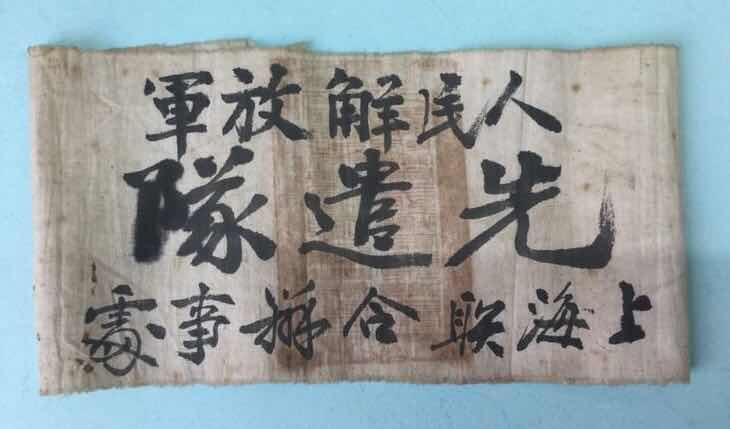 人民解放軍
先遣隊
上海联合辦事處